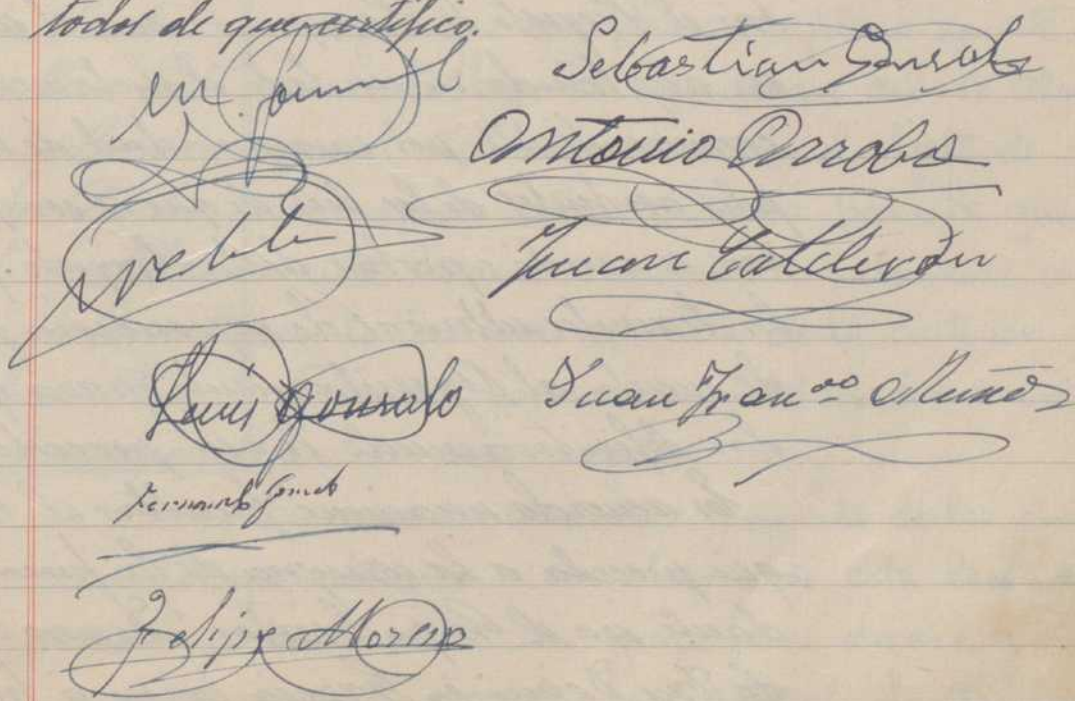 todos de que certifico.
Sebastian Gonzalo
Antonio Arroba
Juan Calderón
Luis Gonzalo
Juan Franco Muñóz
Fernando
Felipe Moreno